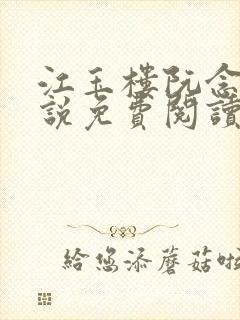 江玉樓阮念
說免費閱讀
給您添蘑菇啦